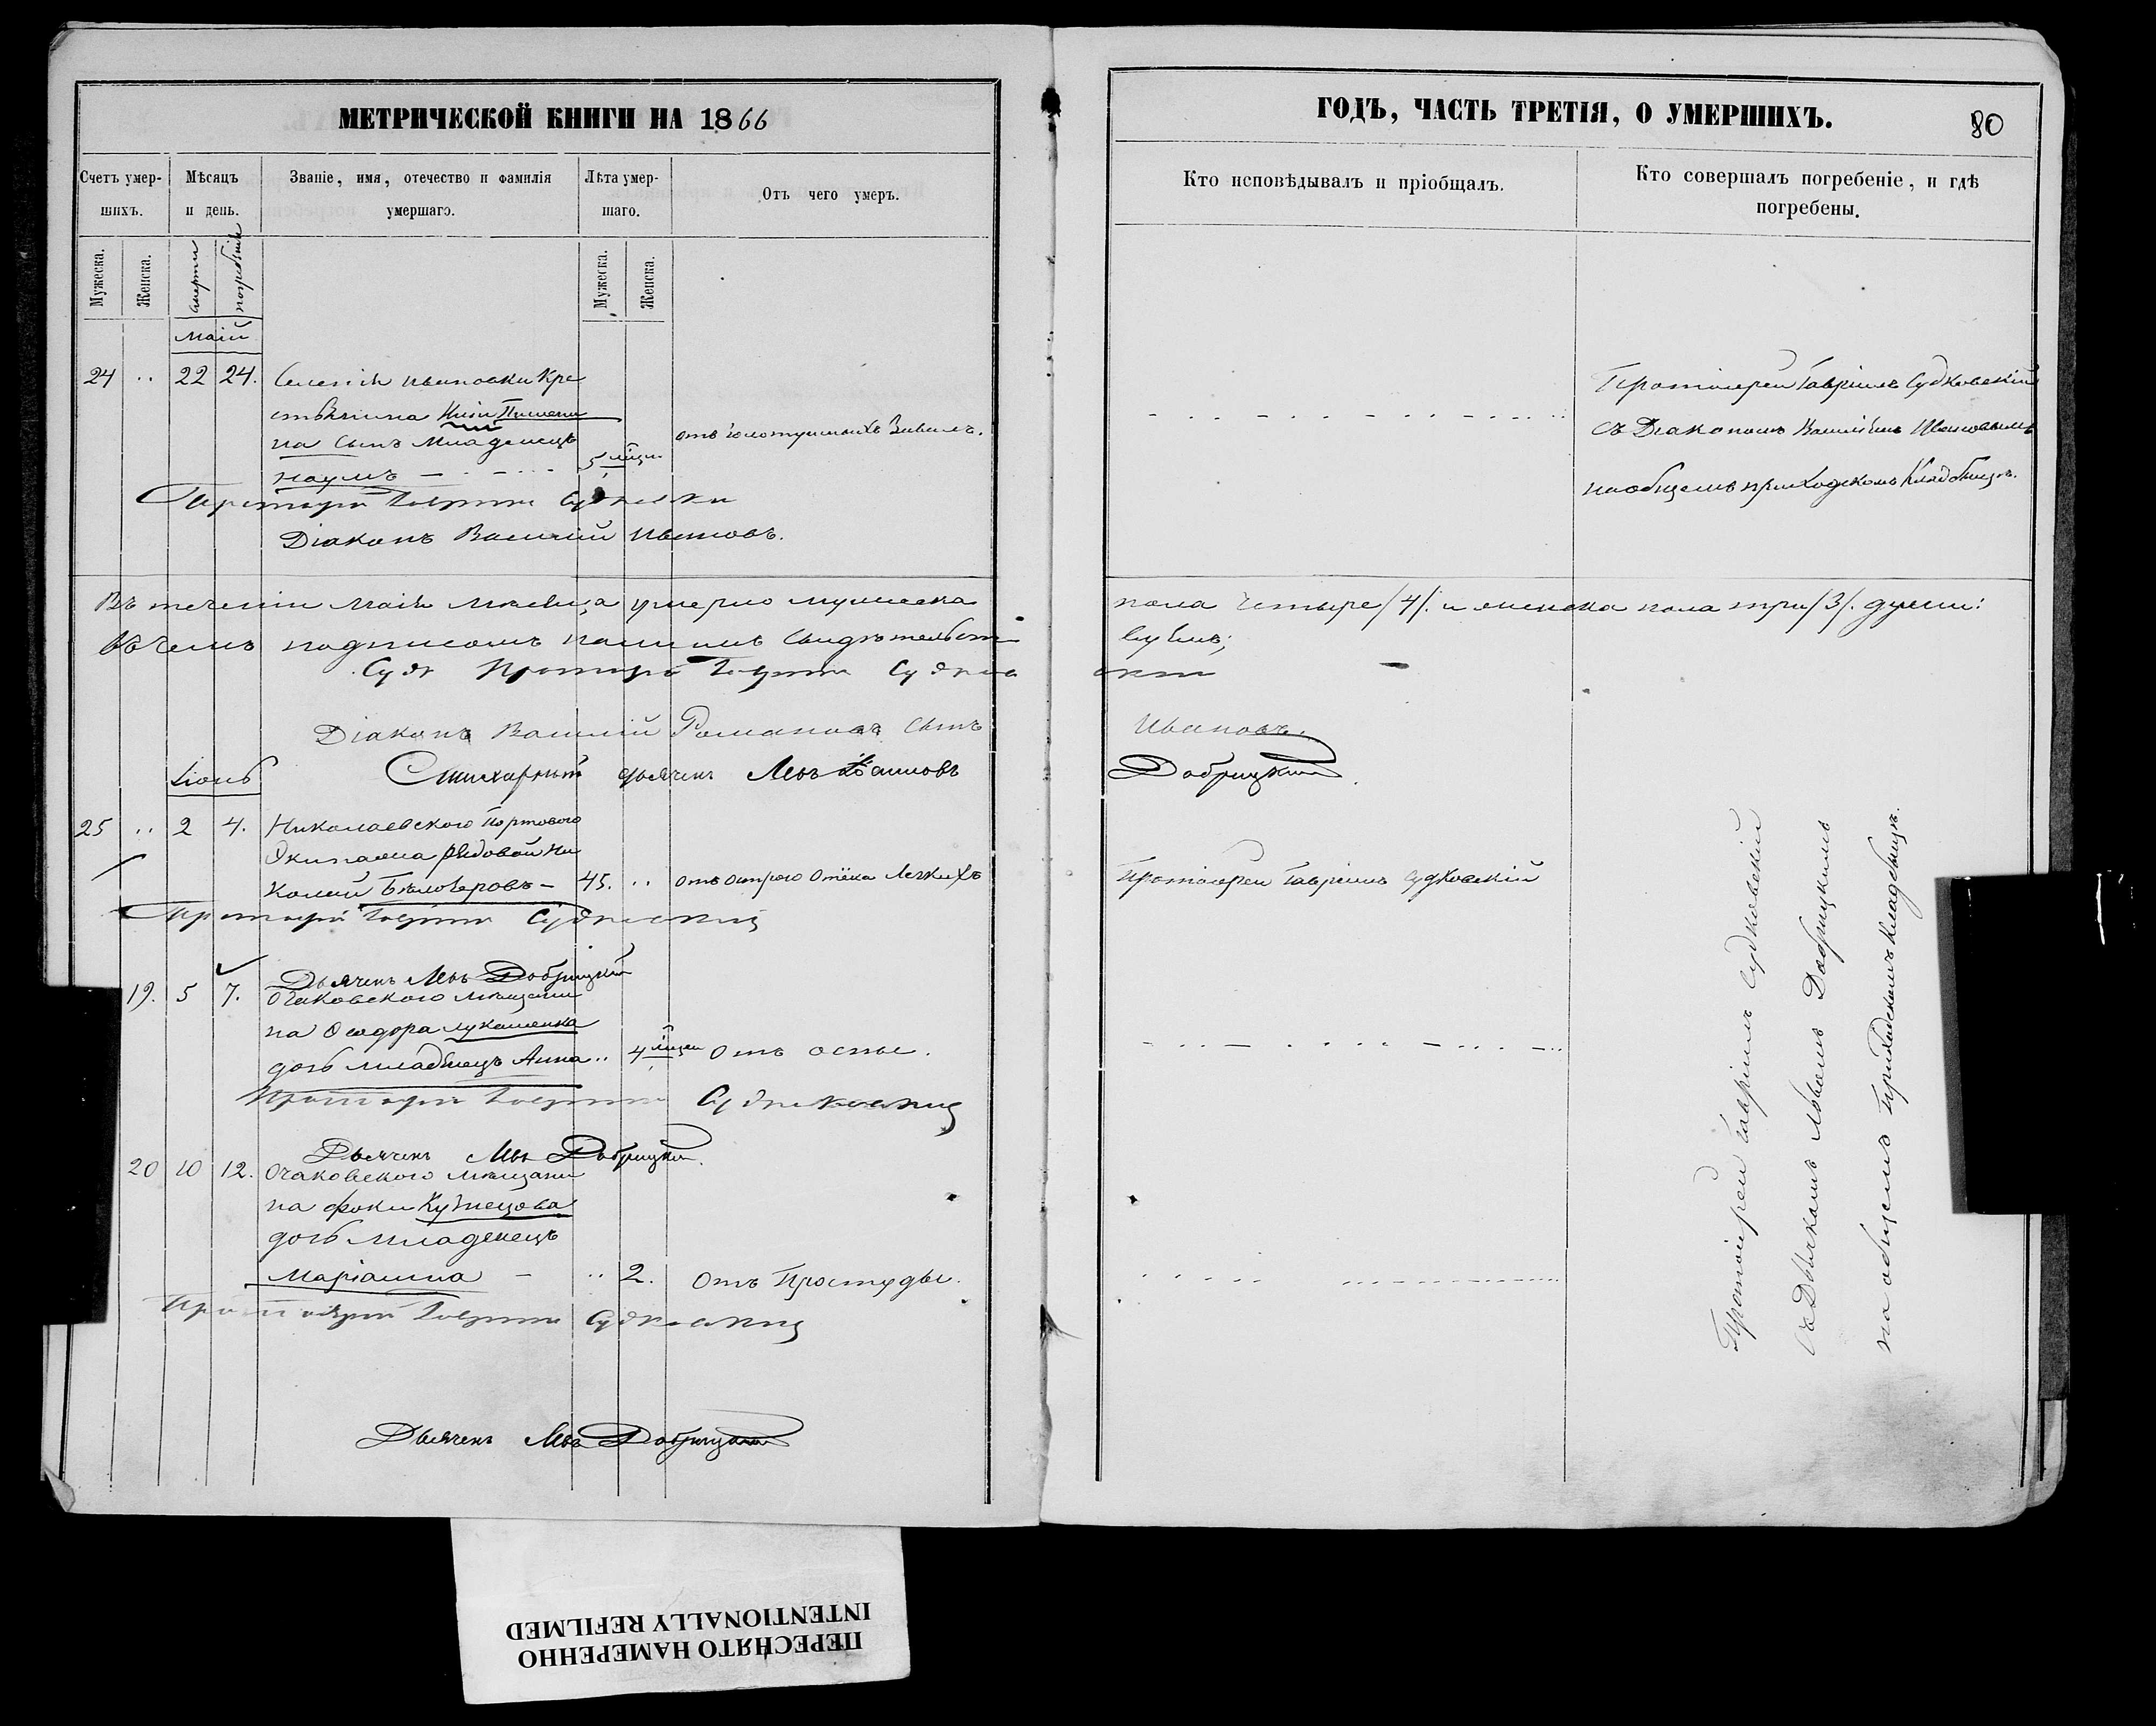 МЕТРИЧЕСКОЙ КНИГИ НА 1866
Счетъ умер-
шихъ.
Мѣсяцъ
и день.
Званіе, имя, отечество и фамилія
умершаго.
Лѣта умер-
шаго.
Отъ чего умеръ.
Мужеска.
Женска.
смерти
погребенія
Мужеска.
Женска.
Маій
24 .. 22 24.
Селенія Ивановки Кре
стьянина
на сынъ младенецъ
Наумъ
5 мѣсе.
отъ золотушныхъ
Протоіерей Гавріилъ Судковскій
Діаконъ Василій Ивановъ.
Въ теченіи Маія Мѣсяца умерло мужеска
въ чемъ подписомъ нашимъ свидѣтельст
Протоіерей Гавріилъ Судковс
Діаконъ Василій Романовъ сынъ
Стихарный дьячекъ Левъ
Іюнь
25 .. 2 4.
Николаевского Портового
Экипажа рядовой Ни
колай Бѣлозеровъ — 45. .. отъ острого отёка легкихъ
Протоіерей Гавріилъ Судковскій
Дьячекъ Левъ Добрицкій
19. 5 7.
Очаковского мѣщани
на Ѳеодора Лукашенка
дочь младенецъ Анна .. 4 мѣсеи отъ оспы.
Протоіерей Гавріилъ Судковскій
Дьячекъ Левъ Добрицкій.
20 10 12.
Очаковского мѣщани
на Фоки Кузнецова
дочь младенецъ
Маріанна — .. 2. отъ Простуды.
Протоіерей Гавріилъ Судковскій
Дьячекъ Левъ Добрицкій
ГОДЪ, ЧАСТЬ ТРЕТІЯ, О УМЕРШИХЪ.
80
Кто исповѣдывалъ и пріобщалъ.
Кто совершалъ погребеніе, и гдѣ
погребены.
Протоіерей Гавріилъ Судковскій
съ Діакономъ Василіемъ Ивановымъ
на общемъ приходскомъ кладбищѣ.
пола четыре /4/. и женска пола три /3/. души:
вуемъ;
Ивановъ.
Добрицкій.
Протоіерей Гавріилъ Судковскій
Протоіерей Гавріилъ Судковскій
съ Дьячкомъ Львомъ Добрицкимъ
на общемъ приходскомъ кладбищѣ.
ПЕРЕСНЯТО НАМЕРЕННО
INTENTIONALLY REFILMED